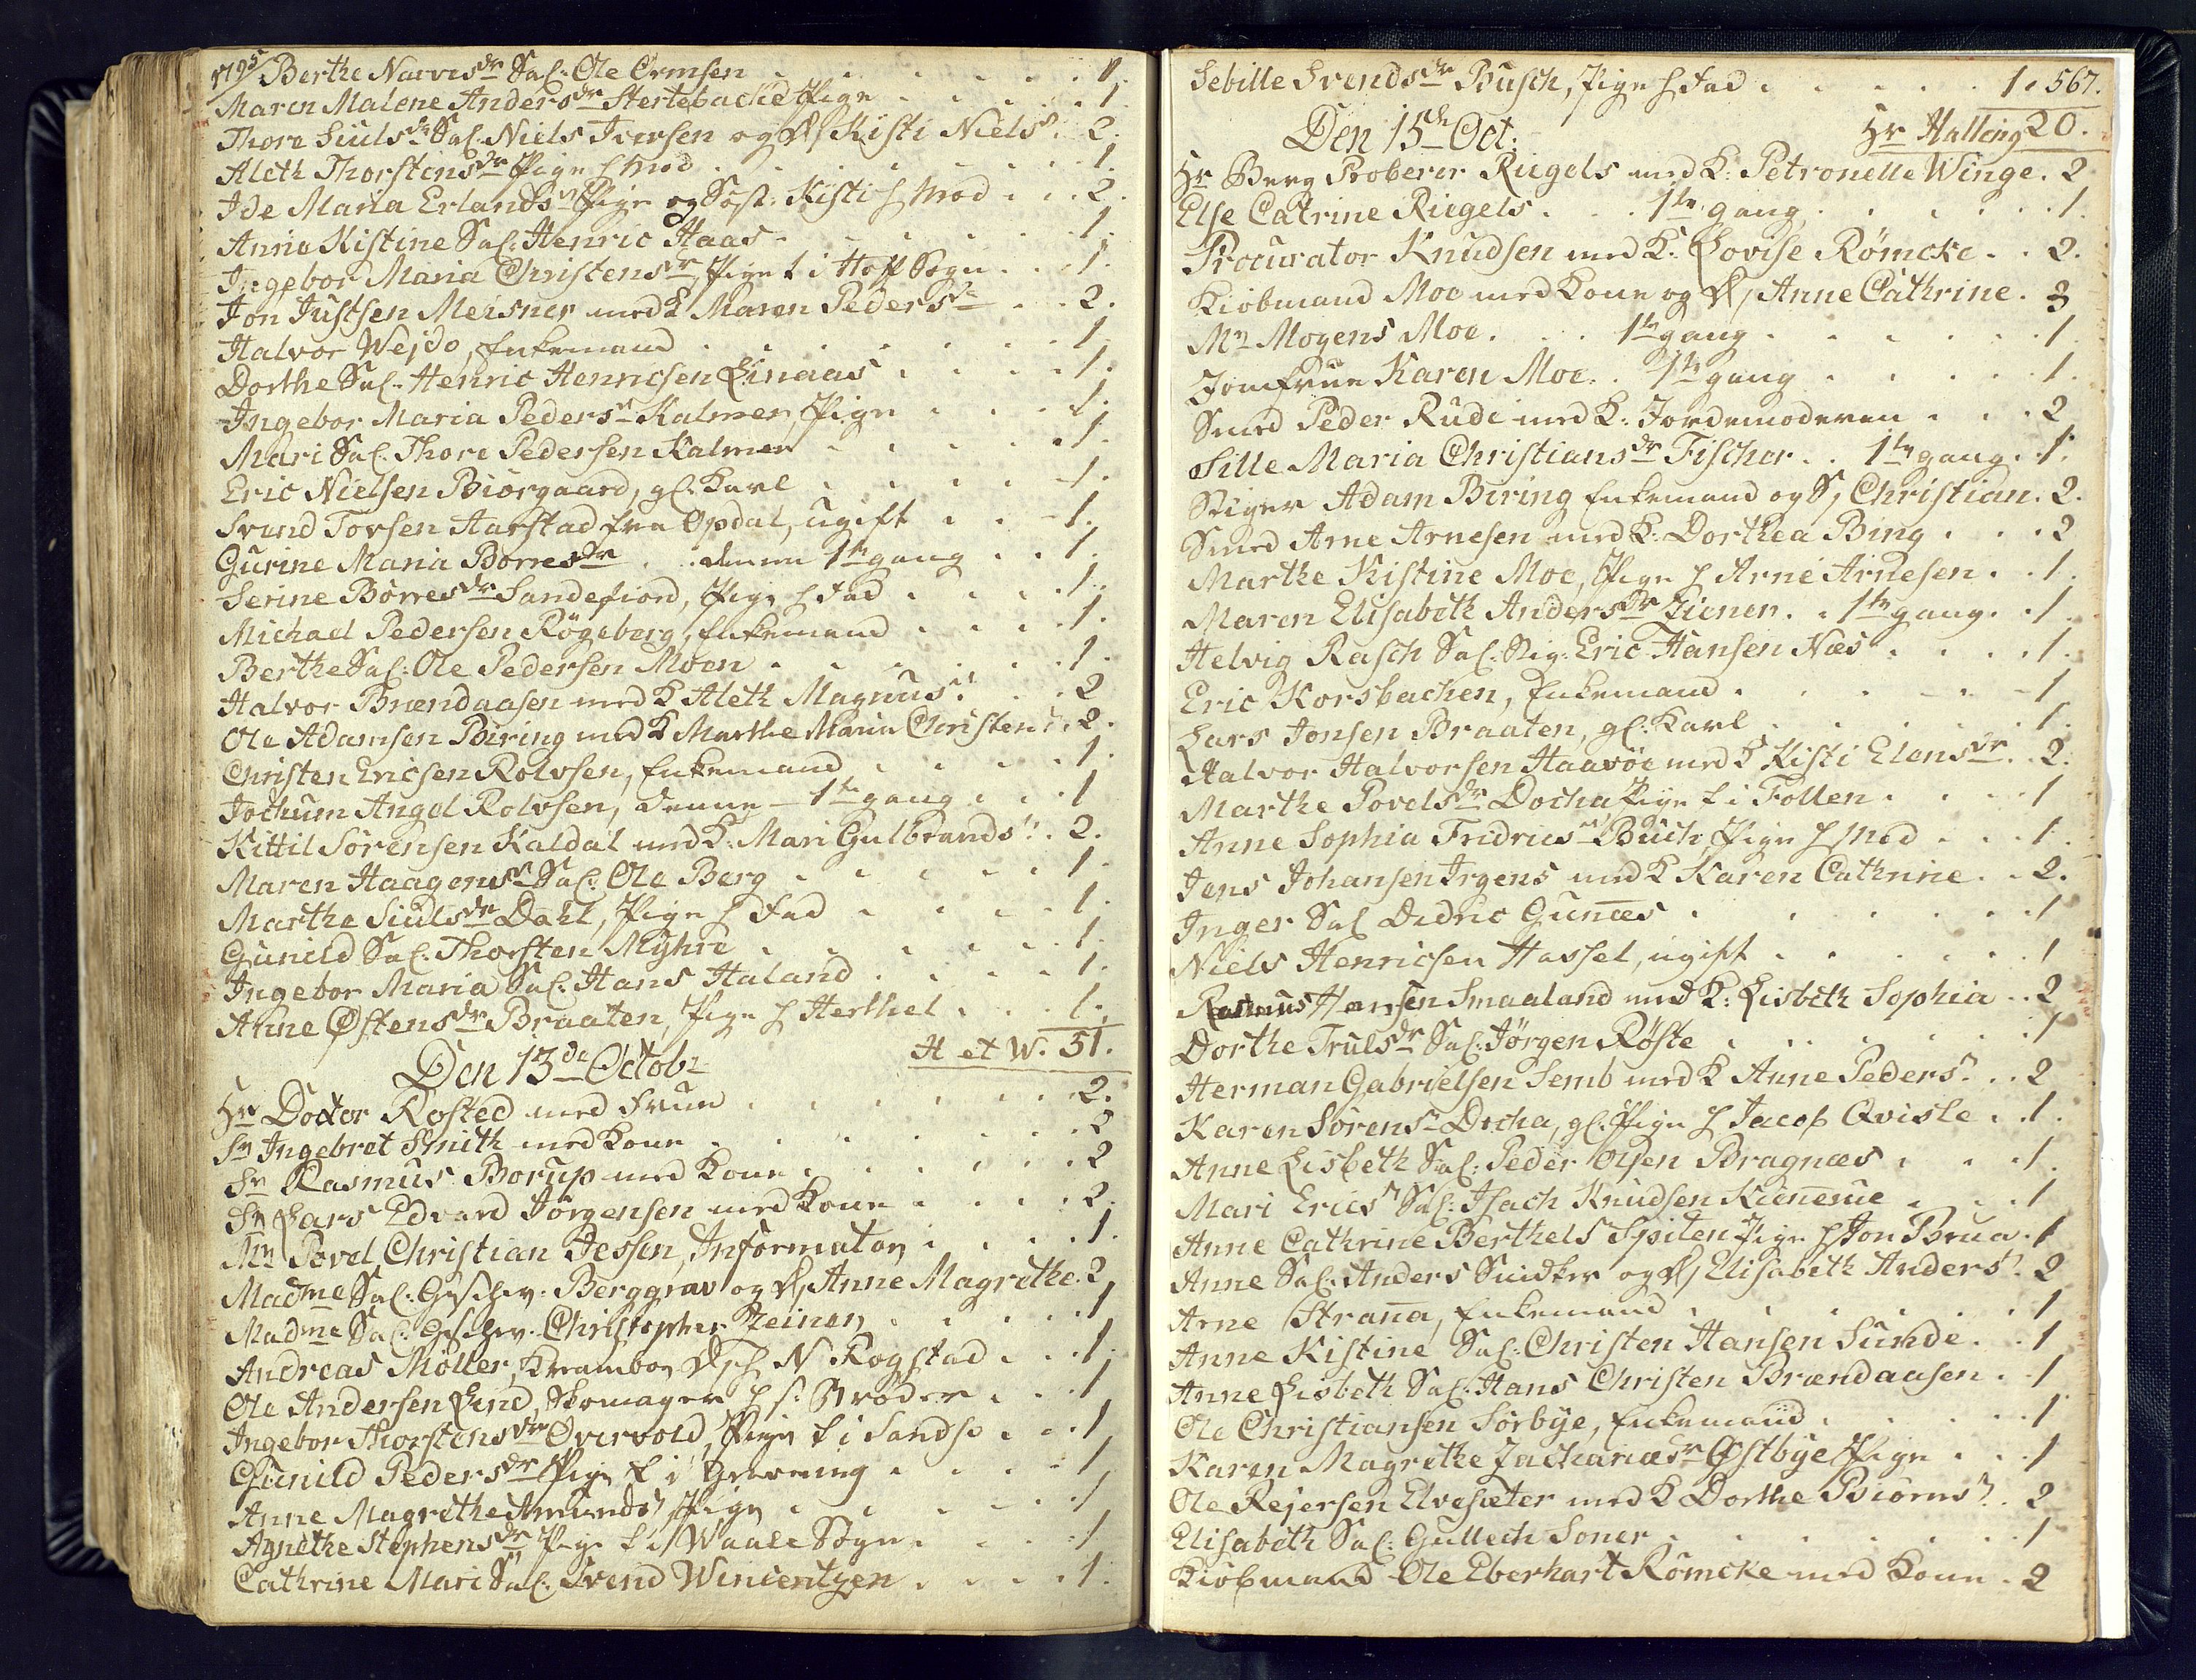 1795 Berthe Narvesdr Sal: Ole Ormsen . . . 1.
Maren Malene Andersdr Stertebacke Pige . . . 1.
Thore Siulsdr Sal. Niels Iversen og D, Kisti Nielsdr. 2.
Aleth Thorstensdr Pige h Mod . . . 1.
Ide Maria Erlandsdr Pige og Søst. Kisti h Mod . . . 2.
Anna Kistine Sal: Henric Haas . . . 1.
Ingebor Maria Christensdr, Pige t i Hoff Sogn . . . 1.
Jon Justsen Meisner med K Maren Pedersdr . . . 2.
Halvor Wejdo, Enkemand . . . 1.
Dorthe Sal. Henric Henricsen Linaas . . . 1.
Ingebor Maria Pedersdr Kalmer, Pige . . . 1.
Mari Sal. Thore Pedersen Kalmer . . . 1.
Eric Nielsen Biørgaard, gl. Karl . . . 1.
Svend Torsen Aarstad fra Opdal, ugift . . . 1.
Gurine Maria Borresdr . . denne 1te gang . . . 1.
Serine Børresdr Sandefiord, Pige h Fad . . . 1.
Michael Pedersen Røgeberg, Enkemand . . . 1.
Berthe Sal: Ole Pedersen Moen . . . 1.
Halvor Brændaasen med K Aleth Magnus: . . . 2
Ole Adamsen Biring med K Marthe Maria Christens: 2.
Christen Ericsen Rolvsen, Enkemand . . . 1.
Jochum Angel Rolvsen, denne - 1te gang . . . 1
Kittil Sørensen Kaldal med K: Mari Gulbrands: . 2.
Maren Haagensdr Sal: Ole Berg . . . 1.
Marthe Siulsdr Dahl, Pige h Fad . . . 1.
Gunild Sal: Thorsten Myhre . . . 1.
Ingebor Maria Sal: Hans Haland . . . 1.
Anne Østensdr Braaten, Pige h Herthel . . . 1.
H et W. 51.
Den 13de Octobr
Hr Doctor Rosted med Frue . . . 2.
Sr Ingebret Smith med Kone . . . 2
Sr Rasmus Borup med Kone . . . 2
Sr Lars Edvard Jørgensen med Kone . . . 2.
Mr Povel Christian Jessen, Informator . . . 1.
Madme Sal: Geschw. Berggrav og D, Anne Magrethe. 2
Madme Sal. Geschw. Christopher Zeiner . . . 1
Andreas Møller, Krambod D, h N Rogstad . . . 1.
Ole Andersen Lind, Skomager h s: Broder . . . 1
Ingebor Thorstensdr Overvold, Pige t i Sandss . . . 1
Gunild Pedersdr Pige t i Greening . . . 1
Anne Magrethe Amundsdr Pige . . . 1
Agnethe Stephensdr Pige t i Waale Sogn . . . 1
Cathrine Mari Sal. Svend Wincentzen . . . 1.
Sebille Svendsdr Busch, Pige h Fad . . . 1. 567.
Hr Halling 20.
Den 15de Oct:
Hr Berg Proberer Riegels med K: Petronelle Winge. 2
Else Catrine Riegels . . . 1te gang . . . 1.
Procurator Knudsen med K: Lovise Rømcke . . 2.
Kiøbmand Moe med Kone og D, Anne Cathrine. 3
Mr Mogens Moe . . . 1te gang . . . 1
Jomfrue Karen Moe . . 1te gang . . . 1.
Smed Peder Rude med K: Jordemoderen . . . 2
Sille Maria Christiansdr Fischer . . 1te gang . 1.
Stiger Adam Biring Enkemand og S, Christian. 2.
Smed Arne Arnesen med K: Dorthea Bing . . . 2
Marthe Kistine Moe, Pige h Arne Arnesen . . 1.
Maren Elisabeth Andersdr Ziener . . 1te gang . . 1
Helvig Rasch Sal: Stig: Eric Hansen Næs . . . 1.
Eric Korsbachen, Enkemand . . . 1
Lars Jonsen Braaten, gl. Karl . . . 1.
Halvor Halvorsen Haavøe med K Kisti Elensdr . . 2.
Marthe Povelsdr Docha Pige t i Follen . . . 1
Anne Sophia Fridricsdr Buch, Pige h Mod . . . 1.
Jens Johansen Irgens med K Karen Cathrine . . 2.
Inger Sal Didric Gunnæs . . . 1
Niels Henricsen Hassel, ugift . . . 1
Rasmus Hansen Smaaland med K: Lisbeth Sophia . . 2
Dorthe Trulsdr Sal: Jørgen Røste . . . 1
Herman Gabrielsen Semb med K Anne Pedersdr . . 2
Karen Sørensdr Docha, gl. Pige h Jacob Qvisle . . 1.
Anne Lisbeth Sal: Peder Olsen Bragnæs . . . 1.
Mari Ericsdr Sal: Isach Knudsen Kiennerue . . . 1
Anne Cathrine Berthels Spiten Pige h Jon Brua. 1
Anne Sal: Anders Snidker og D, Elisabeth Andersdr. 2
Arne Stranna, Enkemand . . . 1
Anne Kistine Sal: Christen Hansen Sunde . . 1
Anne Lisbeth Sal: Hans Christen Brændaasen . . 1
Ole Christiansen Sørbye, Enkemand . . . 1
Karen Magrethe Zachariædr Østbye Pige . . . 1
Ole Rejersen Elvesæter med K Dorthe Biørnsdr . . 2
Elisabeth Sal: Gullech Soner . . . 1
Kiøbmand Ole Eberhart Rømcke med Kone . 2